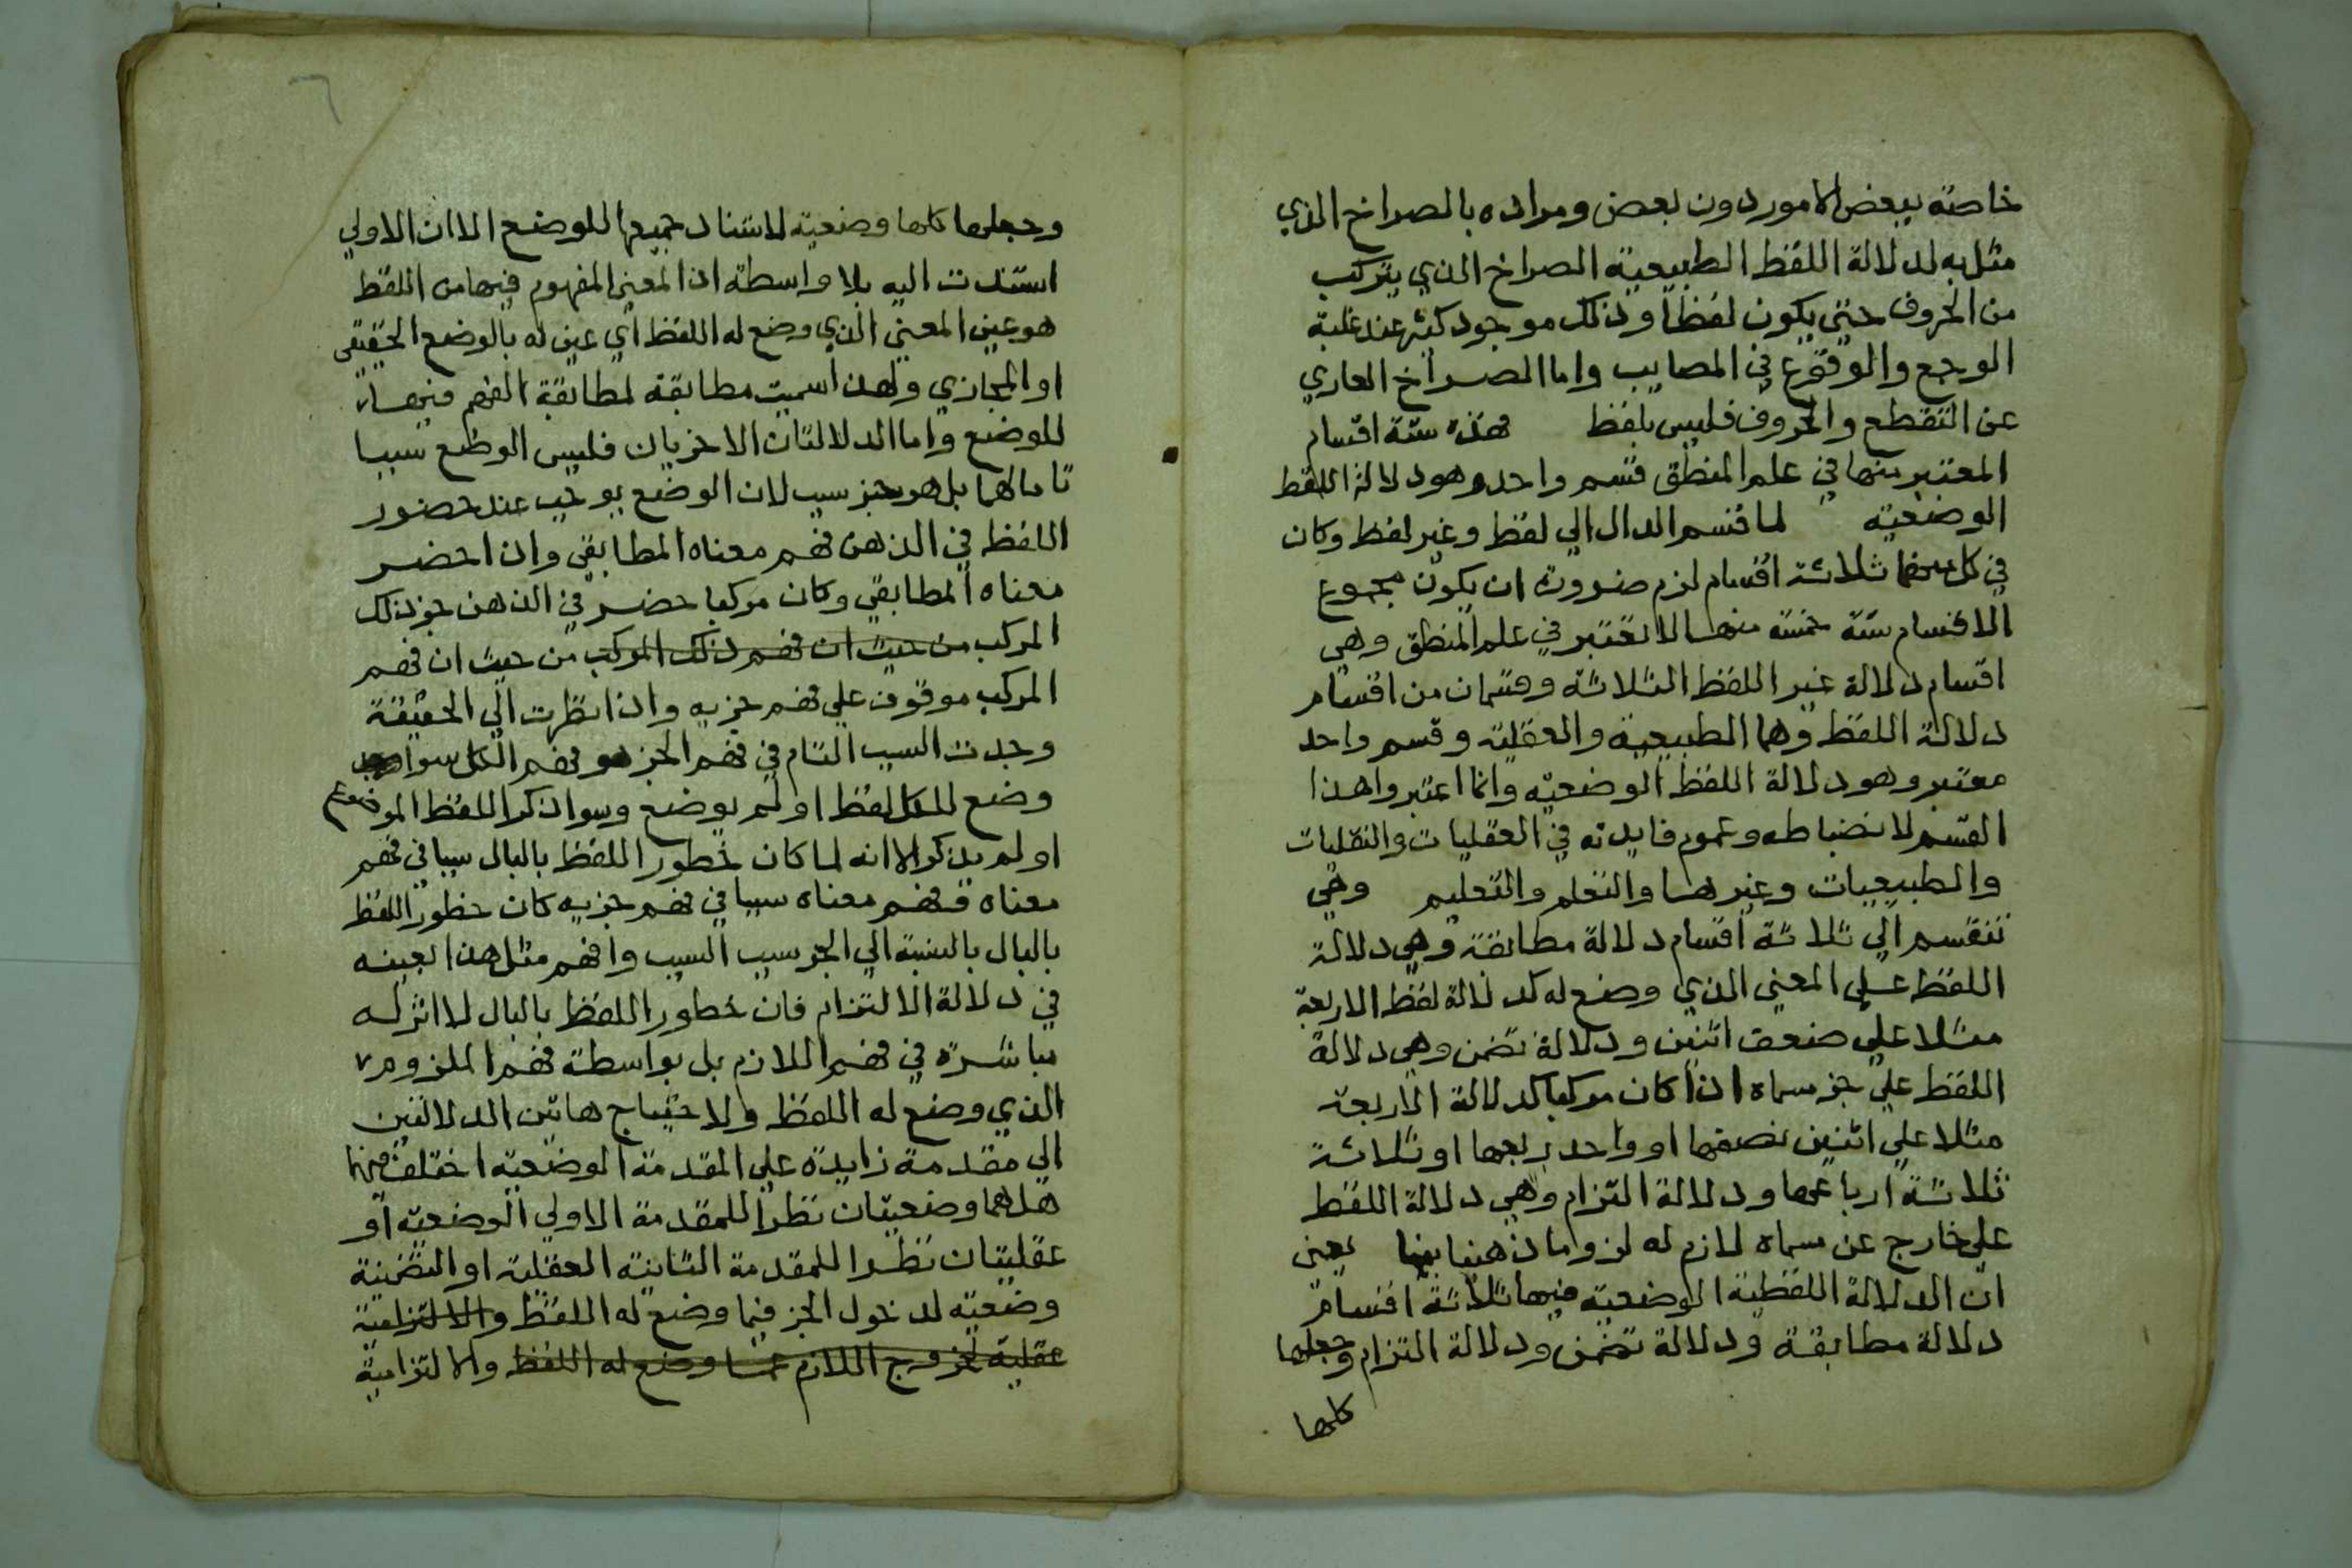 خاصة ببعض الامور دون بعض ومراده بالصراخ الذي
مثل به لدلالة اللفظ الطبيعية الصراخ الذي يتركب
من الحروف حتي يكون لفظا وذلك موجود كثير عند غلبة
الوجع والوقوع في المصايب واما الصراخ العاري
عن التقطع والحروف فليس بلفظ فهذه ستة اقسام
المعتبر منها في علم المنطق قسم واحد وهو دلالة اللفظ
الوضعية لما قسم الدال الي لفظ وغير لفظ وكان
في كل منهما ثلاثة اقسام لزم ضرورة ان يكون مجموع
الاقسام ستة خمسة منها لا تعتبر في علم المنطق وهي
اقسام دلالة غير اللفظ الثلاثة وقسمان من اقسام
دلالة اللفظ وهما الطبيعية والعقلية وقسم واحد
معتبر وهو دلالة اللفظ الوضعية وانما اعتبروا هذا
القسم لانضباطه وعموم فايدته في العقليات والنقليات
والطبيعيات وغيرها والتعلم والتعليم وهي
تنقسم الي ثلاثة اقسام دلالة مطابقة وهي دلالة
اللفظ علي المعني الذي وضع له كدلالة لفظ الاربعة
مثلا علي ضعف اثنين ودلالة تضمن وهي دلالة
اللفظ علي جز مسماه اذا كان مركبا كدلالة الاربعة
مثلا علي اثنين نصفها او واحد ربعها او ثلاثة
ثلاثة ارباعها ودلالة التزام وهي دلالة اللفظ
علي خارج عن مسماه لازم له لزوما ذهنيا يعني
ان الدلالة اللفظية الوضعية فيها ثلاثة اقسام
دلالة مطابقة ودلالة تضمن ودلالة التزام وجعلها
كلها
وجعلها كلها وضعية لاستناد جميعها للوضع الا ان الاولي
استندت اليه بلا واسطة اذ المعني المفهوم فيها من اللفظ
هو عين المعني الذي وضع له اللفظ اي عين له بالوضع الحقيقي
او المجازي ولهذا سميت مطابقة لمطابقة الفهم فيها
للوضع واما الدلالتان الاخريان فليس الوضع سببا
تاما لهما بل هو جز سبب لان الوضع يوجب عند حضور
اللفظ في الذهن فهم معناه المطابقي واذا حضر
معناه المطابقي وكان مركبا حضر في الذهن جز ذلك
المركب من حيث ان فهم ذلك المركب من حيث ان فهم
المركب موقوف علي فهم جزيه واذا نظرت الي الحقيقة
وجدت السبب التام في فهم الجز هو فهم الكل سوا
وضع للكل لفظ او لم يوضع وسوا ذكر اللفظ الموضوع
او لم يذكر الا انه لما كان خطور اللفظ بالبال سببا في فهم
معناه وفهم معناه سببا في فهم جزيه كان خطور اللفظ
بالبال بالنسبة الي الجز سبب السبب وافهم مثل هذا بعينه
في دلالة الالتزام فان خطور اللفظ بالبال لا اثر له
مباشرة في فهم اللازم بل بواسطة فهم الملزوم
الذي وضع له اللفظ ولاحتياج هاتين الدلالتين
الي مقدمة زايدة علي المقدمة الوضعية اختلف فيهما
هل هما وضعيتان نظرا للمقدمة الاولي الوضعية او
عقليتان نظرا للمقدمة الثانية العقلية او التضمنية
وضعية لدخول الجز فيما وضع له اللفظ والالتزامية
عقلية لخروج اللازم عما وضع له اللفظ والالتزامية